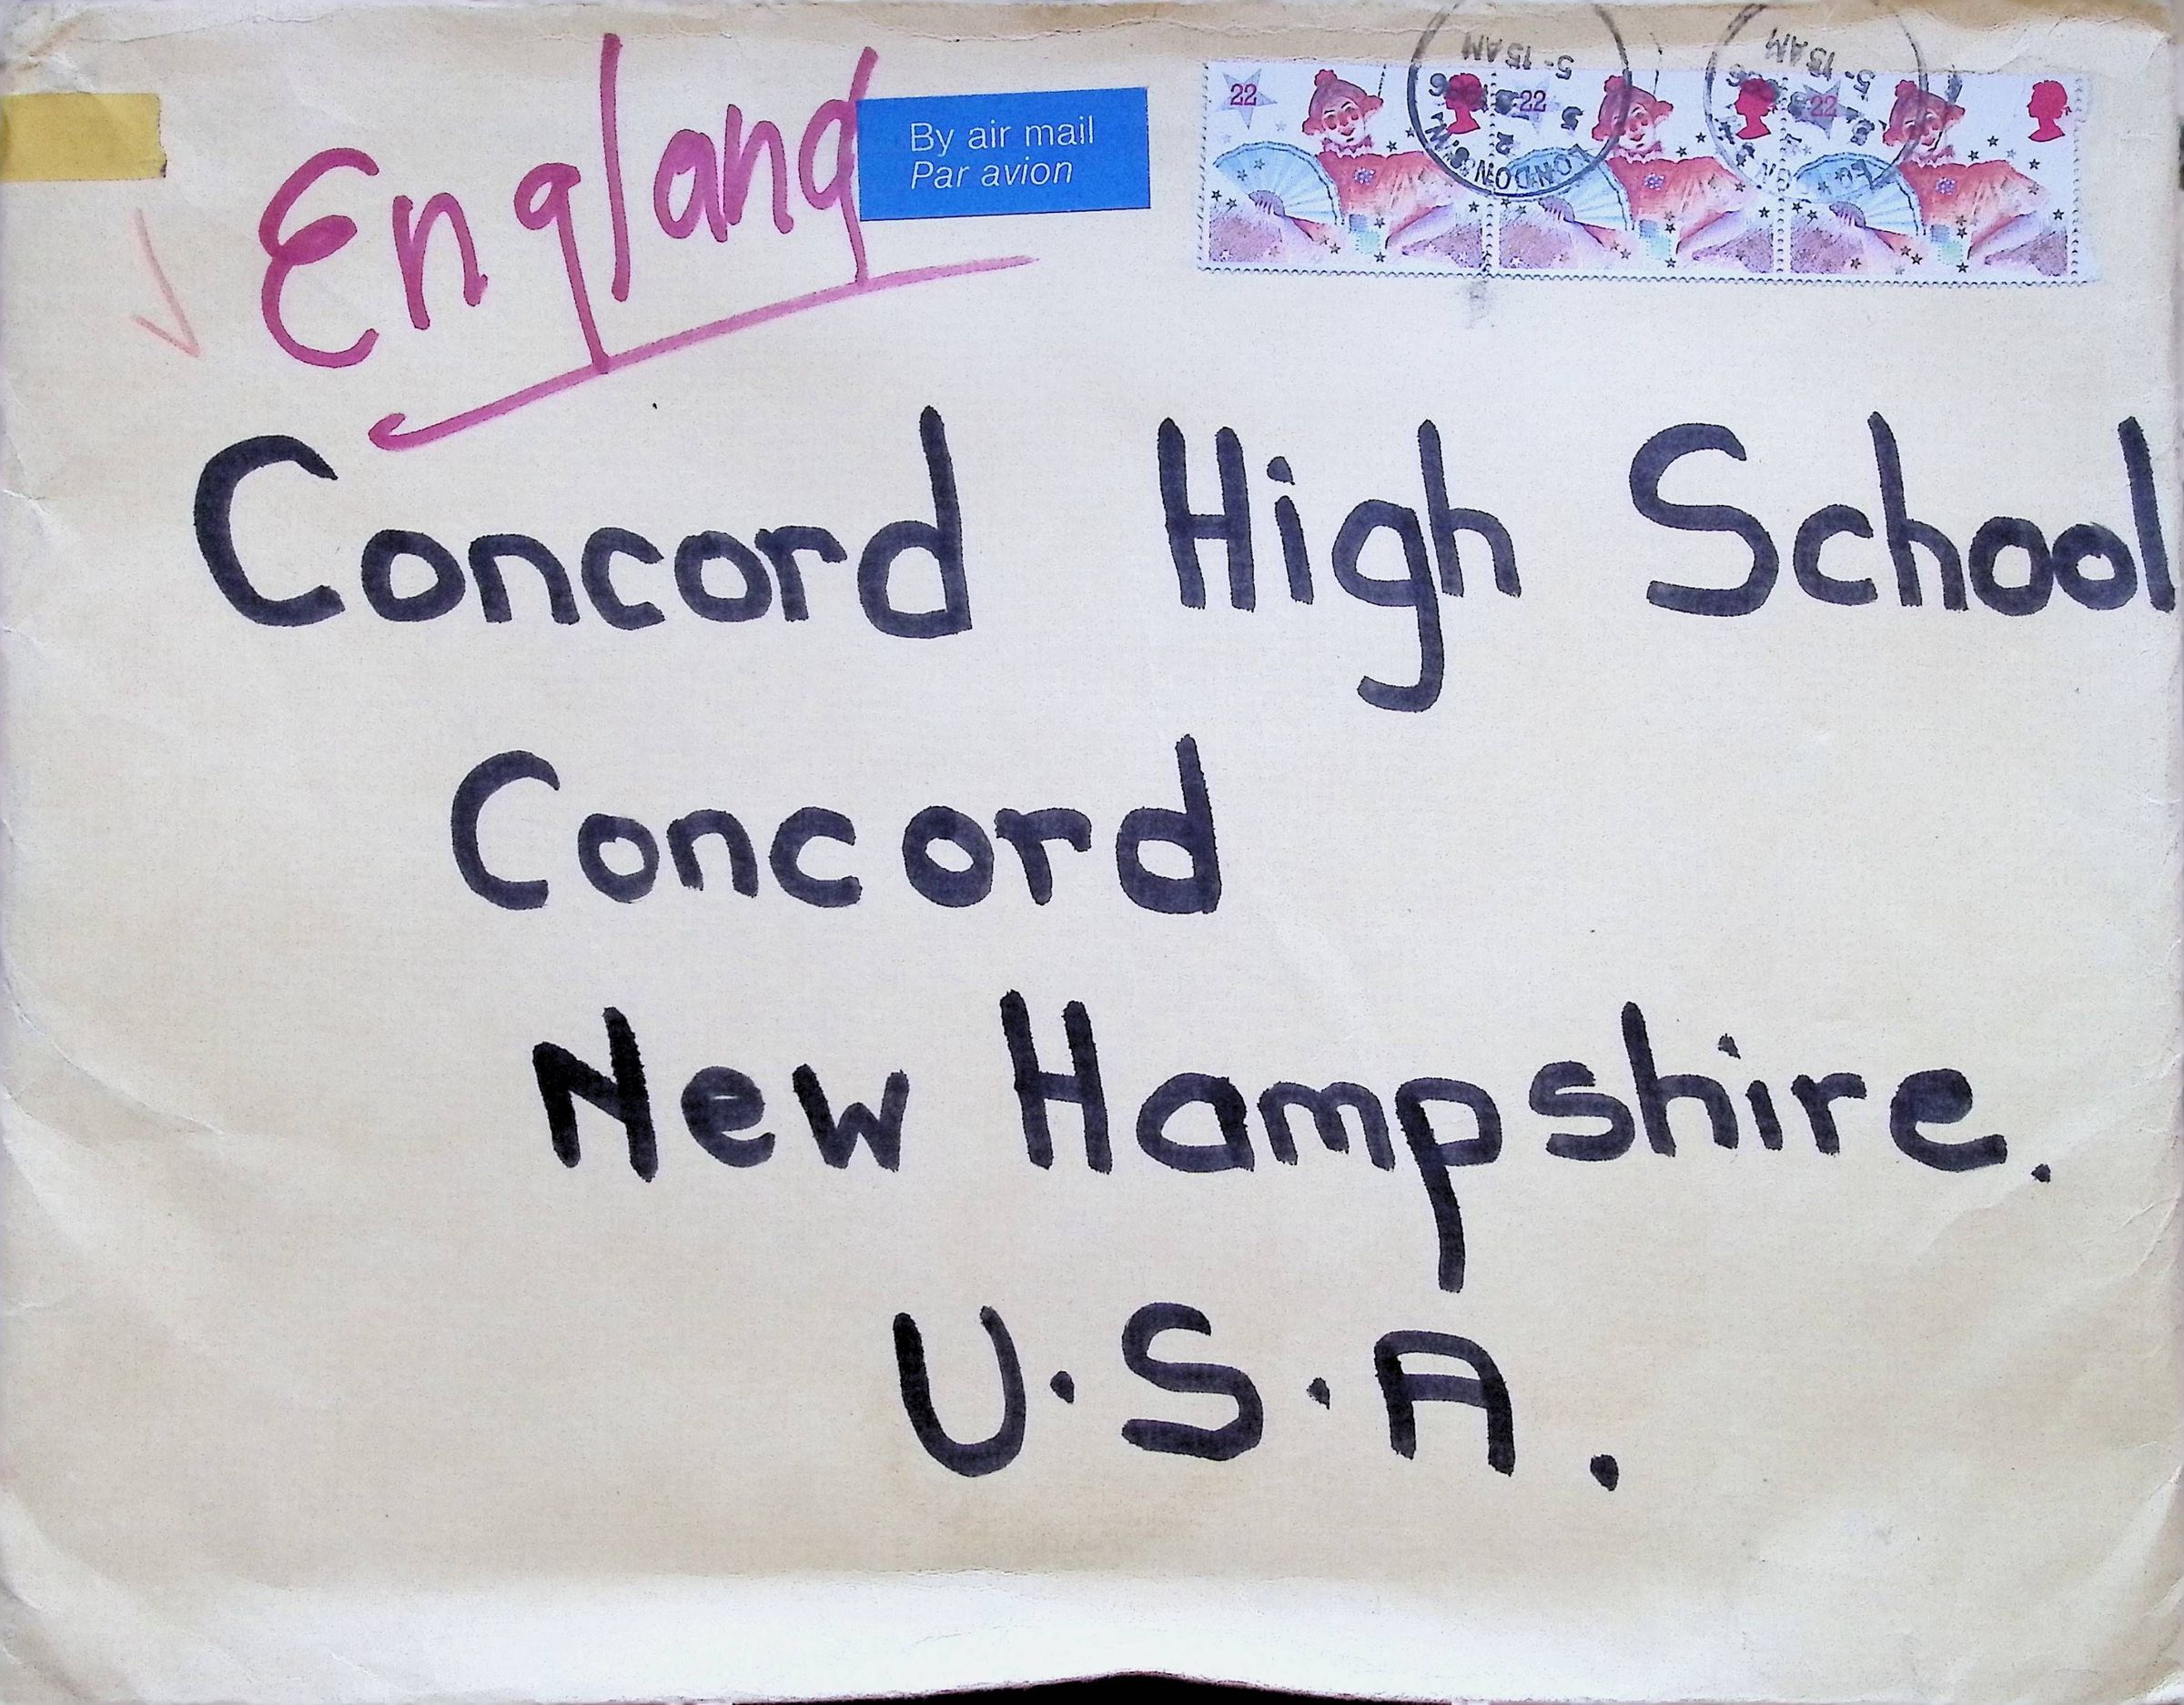 England
By air mail
Par avion
22 22 22
5-15 AM 5-15 AM
LONDON
Concord High School
Concord
New Hampshire.
U.S.A.